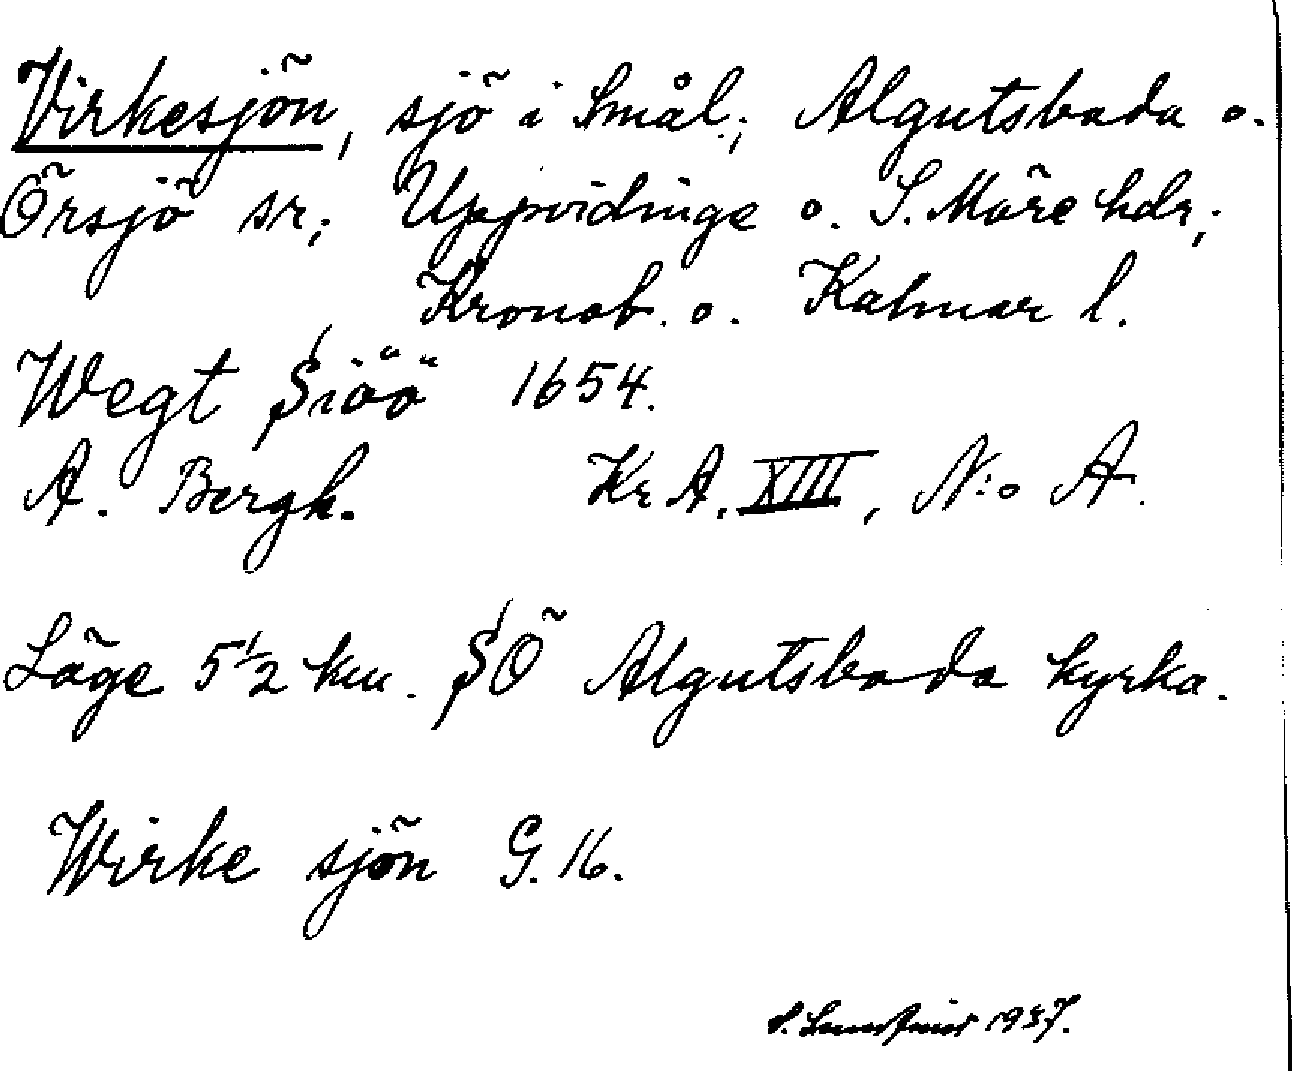 Virkesjön, sjö i Smål.; Algutsboda o.
Örsjö sr; Uppvidinge o. S. Möre hdr,;
Kronob. o. Kalmar l.
Wegt Siöö 1654.
A. Bergh. Kr A. XIII, N:o A.
Läge 5 1/2 km. SÖ Algutsboda kyrka.
Wirke sjön G. 16.
1937.